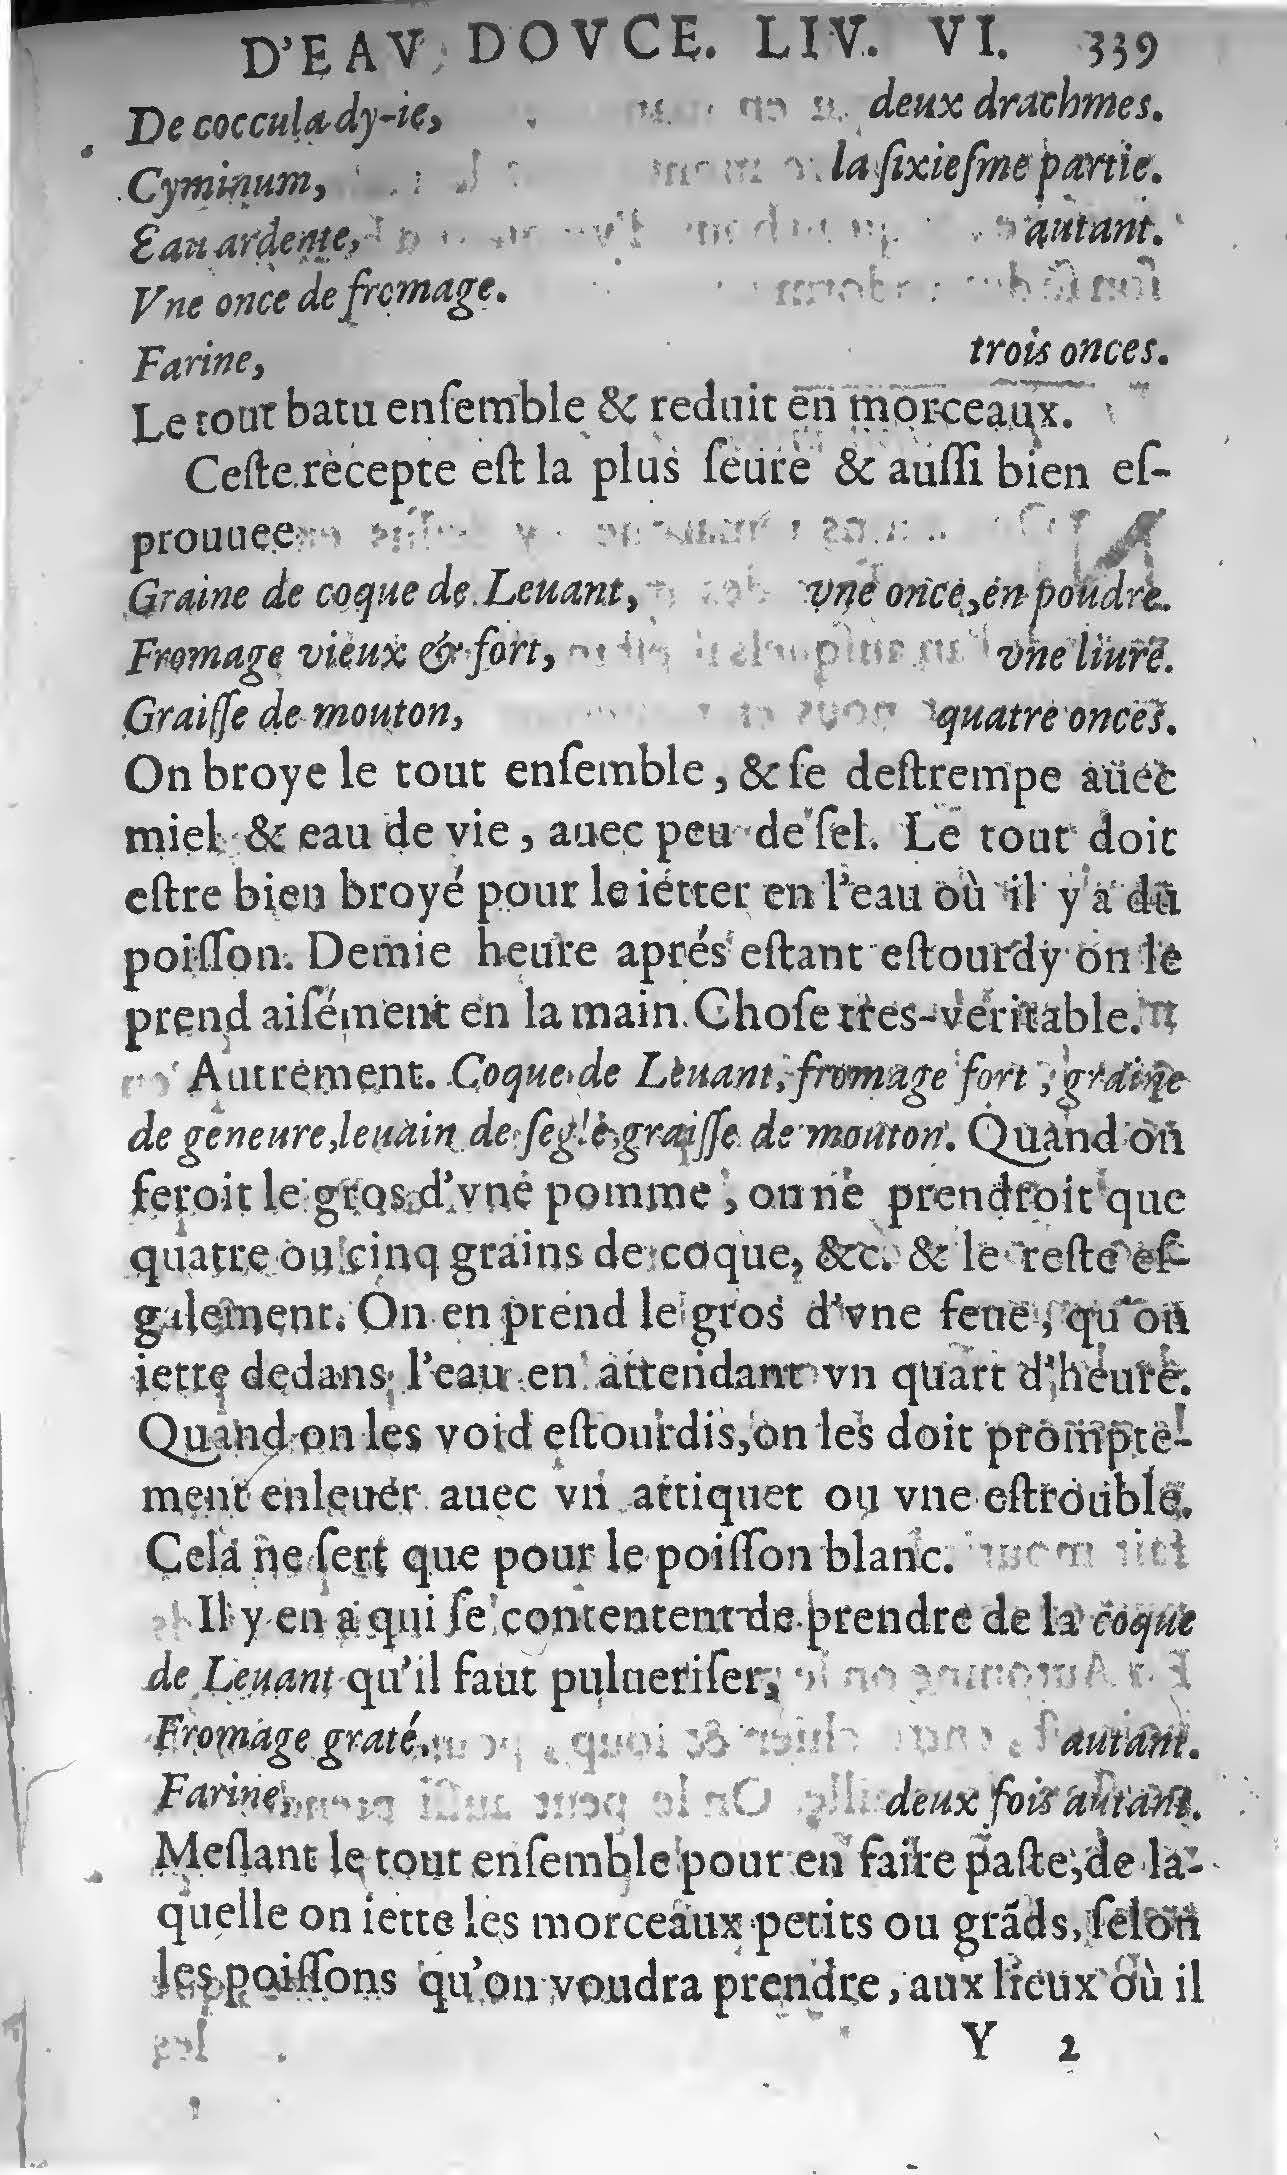 D'EAV DOVCE. LIV. VI. 339
De coccula dy-ie, deux drachmes.
Cyminum, la ſixieſme partie.
Eau ardente, autant.
Vne once de fromage.
Farine, trois onces.
Le tout batu enſemble & reduit en morceaux.
Ceſte recepte eſt la plus ſeure & auſſi bien eſ-
prouuee
Graine de coque de Leuant, vne once, en poudre.
Fromage vieux & fort, vne liure.
Graiſſe de mouton, quatre onces.
On broye le tout enſemble, & ſe deſtrempe auec
miel & eau de vie, auec peu de ſel. Le tout doit
eſtre bien broyé pour le ietter en l'eau où il y a du
poiſſon. Demie heure aprés eſtant eſtourdy on le
prend aiſément en la main. Choſe tres-veritable.
Autrement. Coque de Leuant, fromage fort, graine
de geneure, leuain de ſegle, graiſſe de mouton. Quand on
feroit le gros d'vne pomme, on ne prendroit que
quatre ou cinq grains de coque, &c. & le reſte eſ-
galement. On en prend le gros d'vne feue, qu'on
iette dedans l'eau en attendant vn quart d'heure.
Quand on les void eſtourdis, on les doit prompte-
ment enleuer auec vn attiquet ou vne eſtrouble.
Cela ne ſert que pour le poiſſon blanc.
Il y en a qui ſe contentent de prendre de la coque
de Leuant qu'il faut pulueriſer,
Fromage graté, autant.
Farine, deux fois autant.
Meſlant le tout enſemble pour en faire paſte, de la-
quelle on iette les morceaux petits ou grãds, ſelon
les poiſſons qu'on voudra prendre, aux lieux où il
Y 2